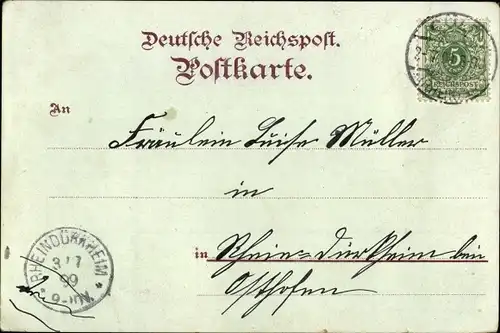 Deutsche Reichspost.
Postkarte.
5
REICHSPOST
An
Fräulein Luise Müller
in
in Rhein-Dürkheim bei
Osthofen
RHEINDÜRKHEIM
3/7
99
9-10N.